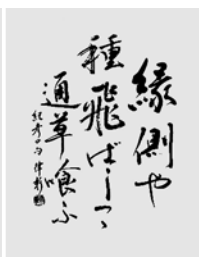 縁側や
種飛ばしつゝ
通草喰ふ